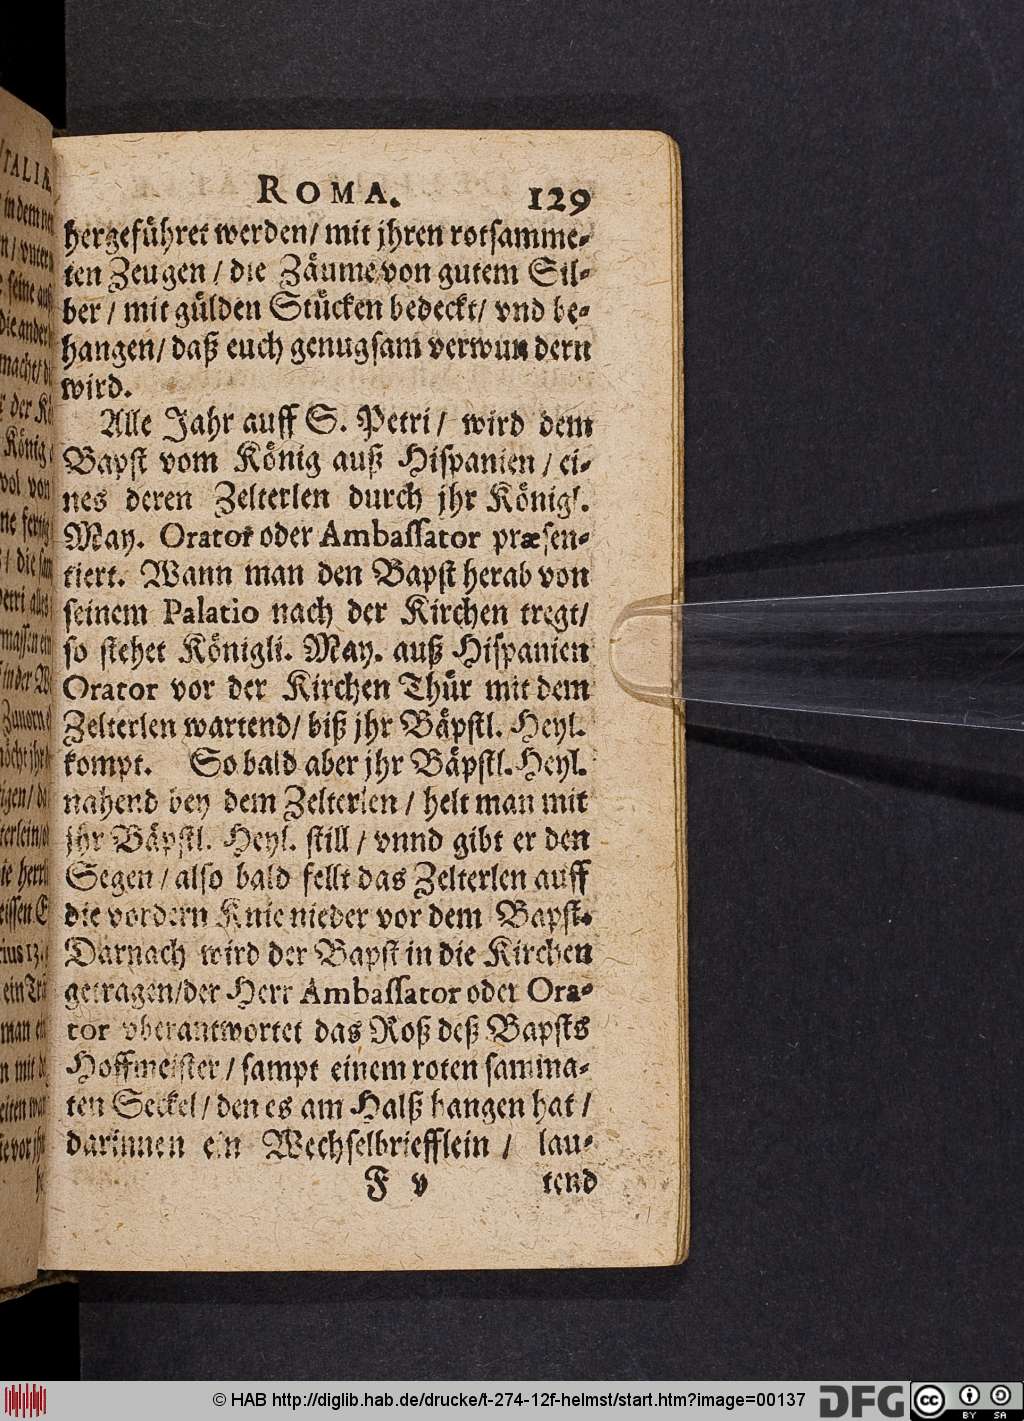 ROMA. 129
hergeführet werden/ mit jhren rotsamme-
ten Zeugen / die Zäume von gutem Sil-
ber / mit gülden Stücken bedeckt/ vnd be-
hangen/ daß euch genugsam verwundern
wird.
Alle Jahr auff S. Petri / wird dem
Bapst vom König auß Hispanien / ei-
nes deren Zelterlen durch jhr Königl.
May. Orator oder Ambassator præsen-
tiert. Wann man den Bapst herab von
seinem Palatio nach der Kirchen tregt/
so stehet Königli. May. auß Hispanien
Orator vor der Kirchen Thür mit dem
Zelterlen wartend/ biß jhr Bäpstl. Heyl.
kompt. So bald aber jhr Bäpstl. Heyl.
nahend bey dem Zelterlen / helt man mit
jhr Bäpstl. Heyl. still / vnnd gibt er den
Segen / also bald fellt das Zelterlen auff
die vordern Knie nieder vor dem Bapst.
Darnach wird der Bapst in die Kirchen
getragen/der Herr Ambassator oder Ora-
tor vberantwortet das Roß deß Bapsts
Hoffmeister / sampt einem roten samma-
ten Seckel / den es am Halß hangen hat /
darinnen ein Wechselbriefflein / lau-
F v tend
© HAB http://diglib.hab.de/drucke/t-274-12f-helmst/start.htm?image=00137
DFG
cc BY SA